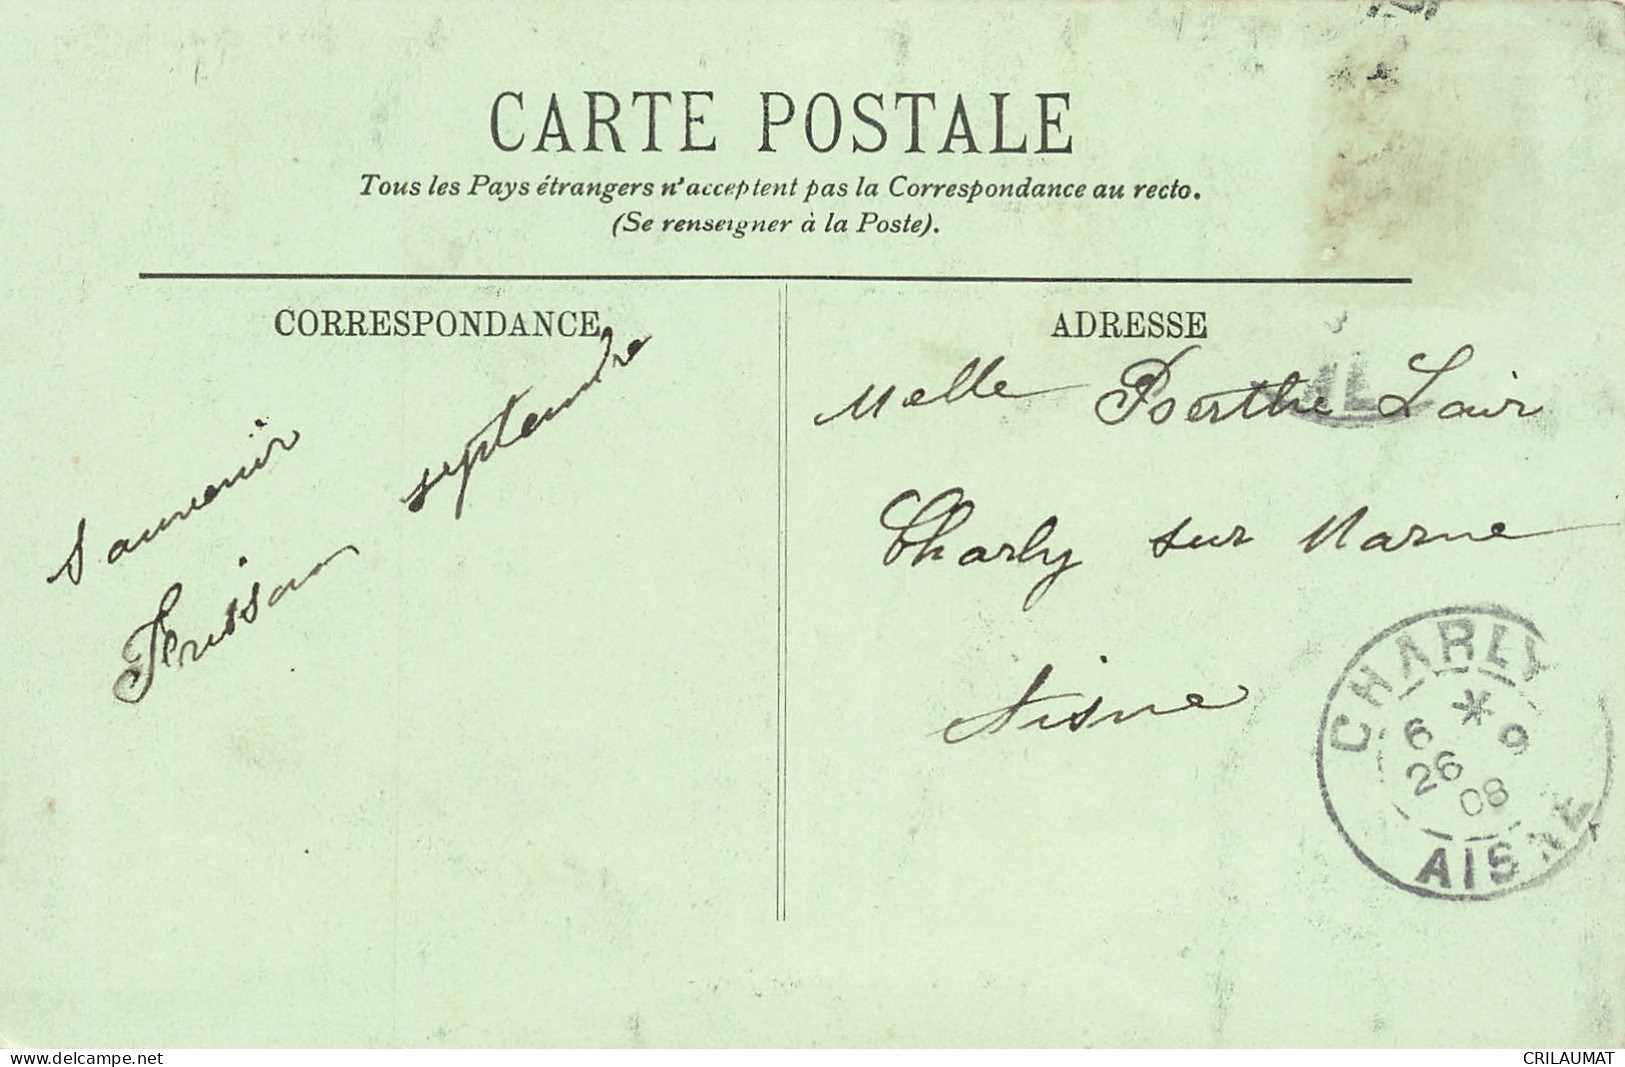 CARTE POSTALE
Tous les Pays étrangers n'acceptent pas la Correspondance au recto.
(Se renseigner à la Poste).
CORRESPONDANCE
Souvenir septembre
ADRESSE
Melle Berthe Loir
Charly sur Marne
Aisne
CHARLY
6 * 9
26
08
AISNE
delcampe.net
CRILAUMAT